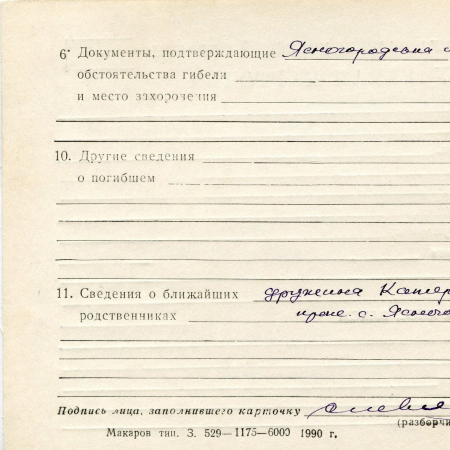 6• Документы, подтверждающие Ясногородська
обстоятельства гибели
и место захоронения
10. Другие сведения
о погибшем
11. Сведения о ближайших дружина Катер
родственниках прож. с. Ясного
Подпись лица, заполнившего карточку
(разборчи
Макаров тип. З. 529—1175—6000 1990 г.